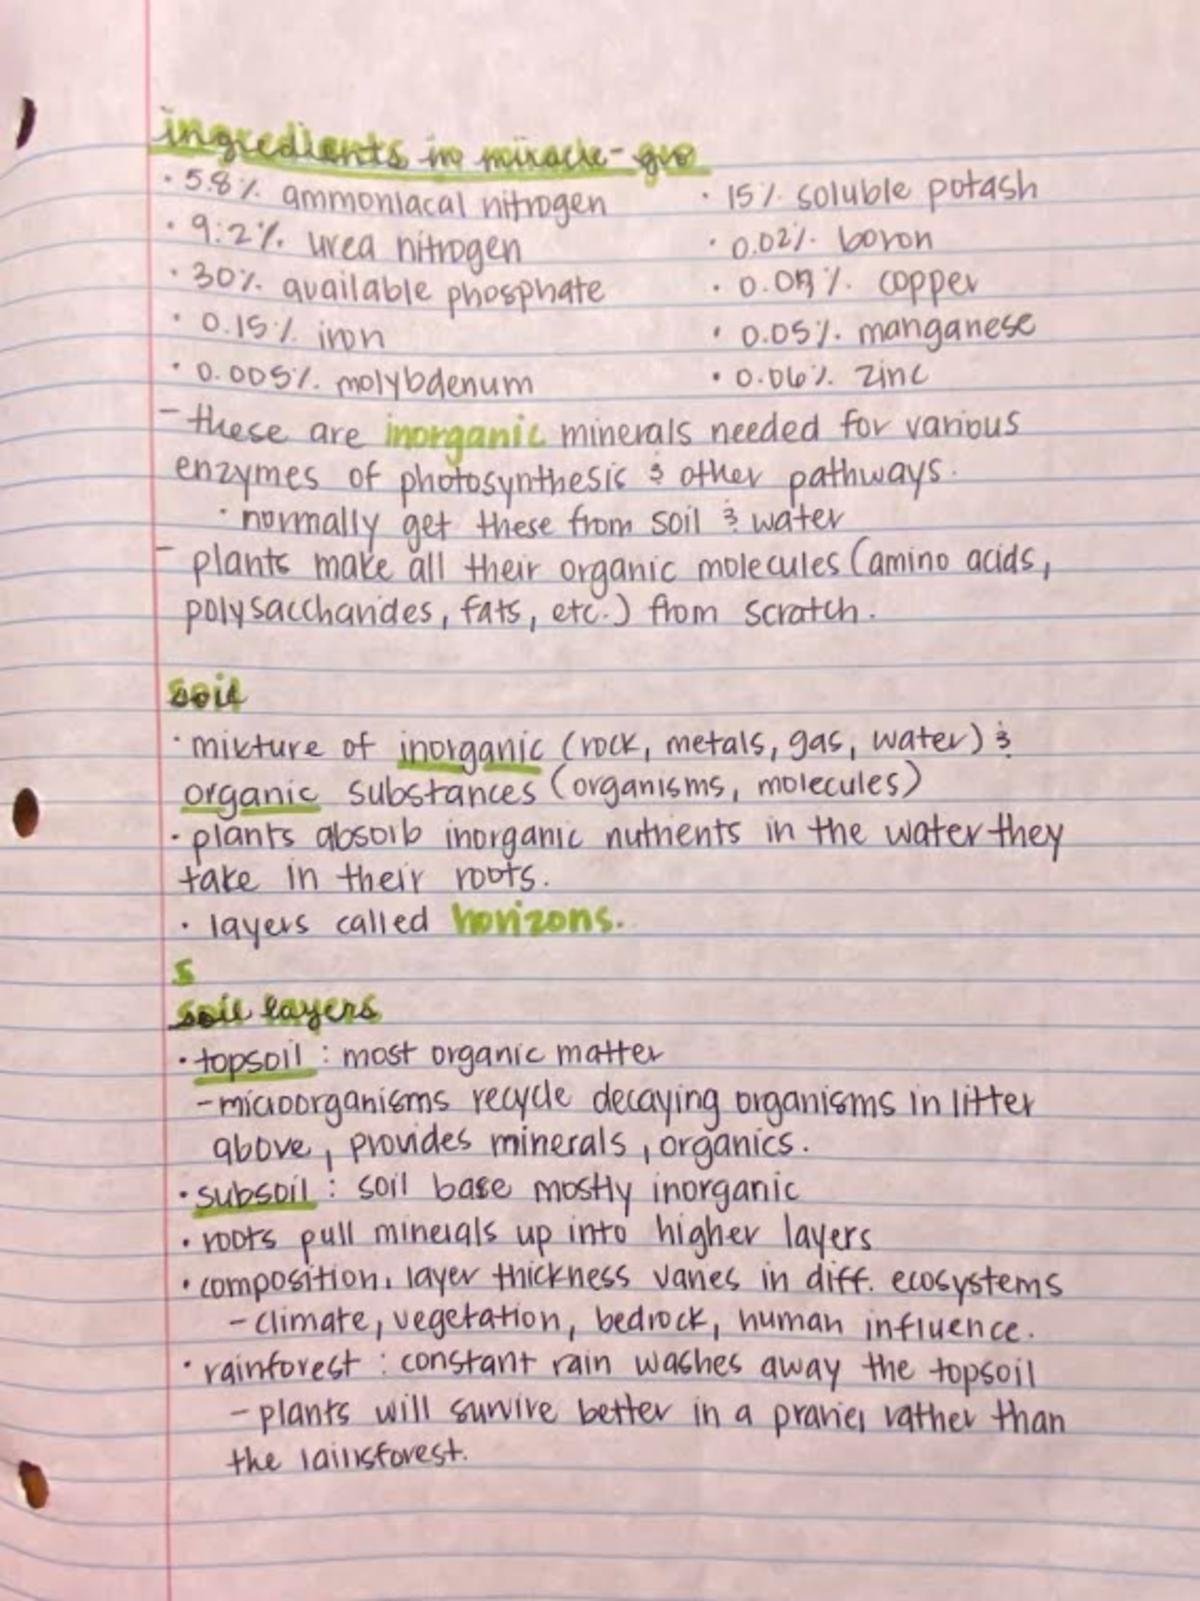 ingredients in miracle-gro
· 5.8% ammoniacal nitrogen
· 15% soluble potash
· 9.2% urea nitrogen
· 0.02% boron
· 30% available phosphate
· copper
· 0.15% iron
· 0.05% manganese
· 0.005% molybdenum
· 0.06% zinc
- these are inorganic minerals needed for various
enzymes of photosynthesis & other pathways.
· normally get these from soil & water
- plants make all their organic molecules (amino acids,
polysaccharides, fats, etc.) from scratch.
soil
· mixture of inorganic (rock, metals, gas, water) &
organic substances (organisms, molecules)
· plants absorb inorganic nutrients in the water they
take in their roots.
· layers called horizons.
s
soil layers
· topsoil : most organic matter
- microorganisms recycle decaying organisms in litter
above, provides minerals, organics.
· subsoil : soil base mostly inorganic
· roots pull minerals up into higher layers
· composition, layer thickness varies in diff. ecosystems
- climate, vegetation, bedrock, human influence.
· rainforest : constant rain washes away the topsoil
- plants will survive better in a rather than
the